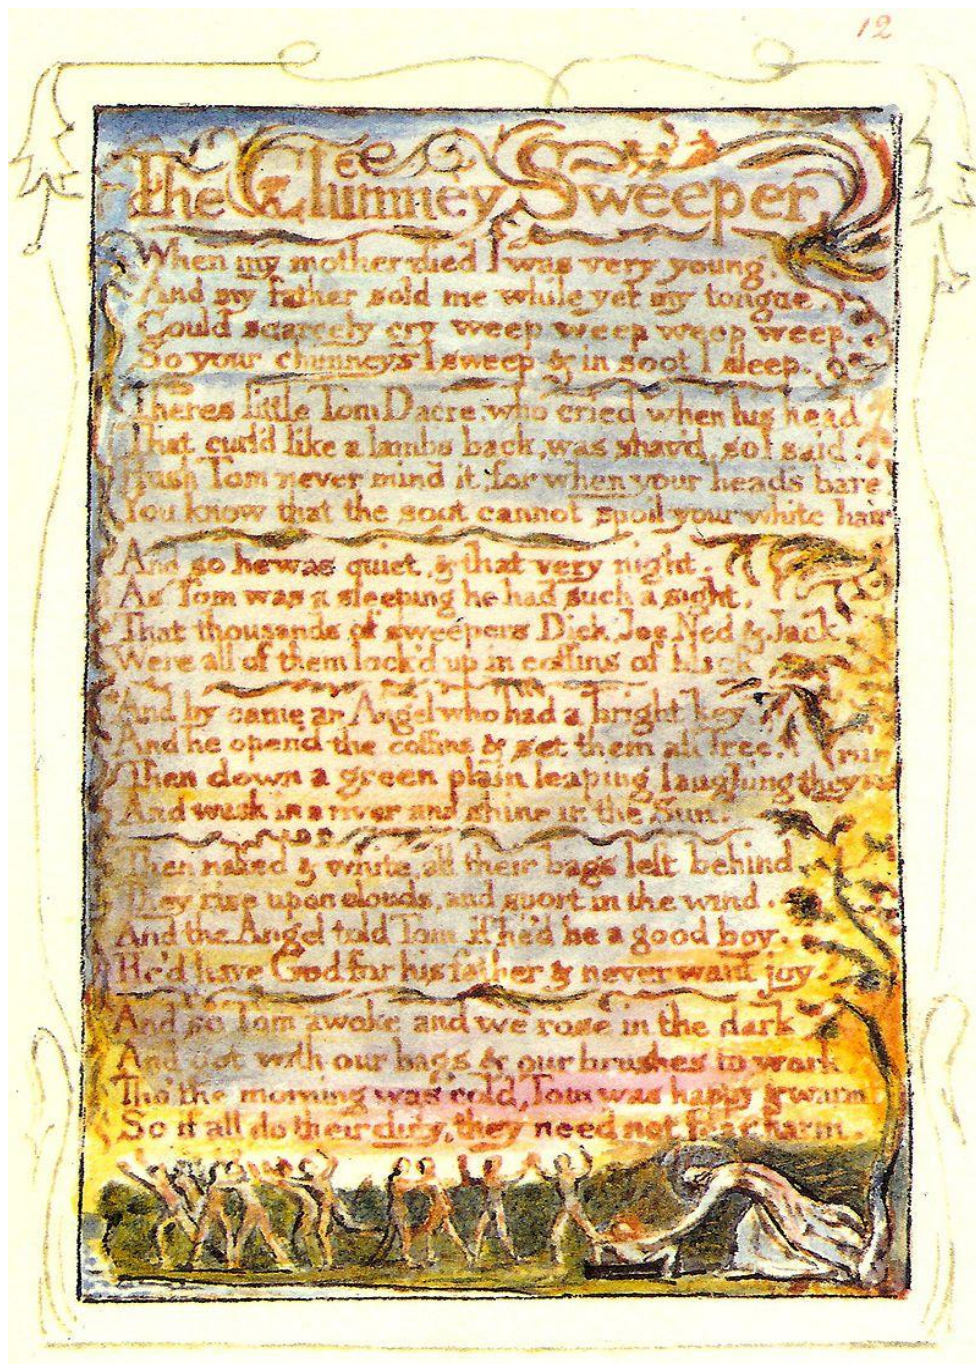 12
The Chimney Sweeper
When my mother died I was very young,
And my father sold me while yet my tongue
Could scarcely cry weep weep weep weep.
So your chimneys I sweep & in soot I sleep.
Theres little Tom Dacre, who cried when his head
That curl'd like a lambs back, was shav'd, so I said.
Hush Tom never mind it, for when your head's bare,
You know that the soot cannot spoil your white hair
And so he was quiet, & that very night.
As Tom was a sleeping he had such a sight,
That thousands of sweepers Dick, Joe, Ned & Jack
Were all of them lock'd up in coffins of black,
And by came an Angel who had a bright key
And he open'd the coffins & set them all free.
Then down a green plain leaping laughing they run
And wash in a river and shine in the Sun.
Then naked & white, all their bags left behind,
They rise upon clouds, and sport in the wind.
And the Angel told Tom, if he'd be a good boy,
He'd have God for his father & never want joy.
And so Tom awoke and we rose in the dark
And got with our bags & our brushes to work.
Tho' the morning was cold, Tom was happy & warm.
So if all do their duty, they need not fear harm.